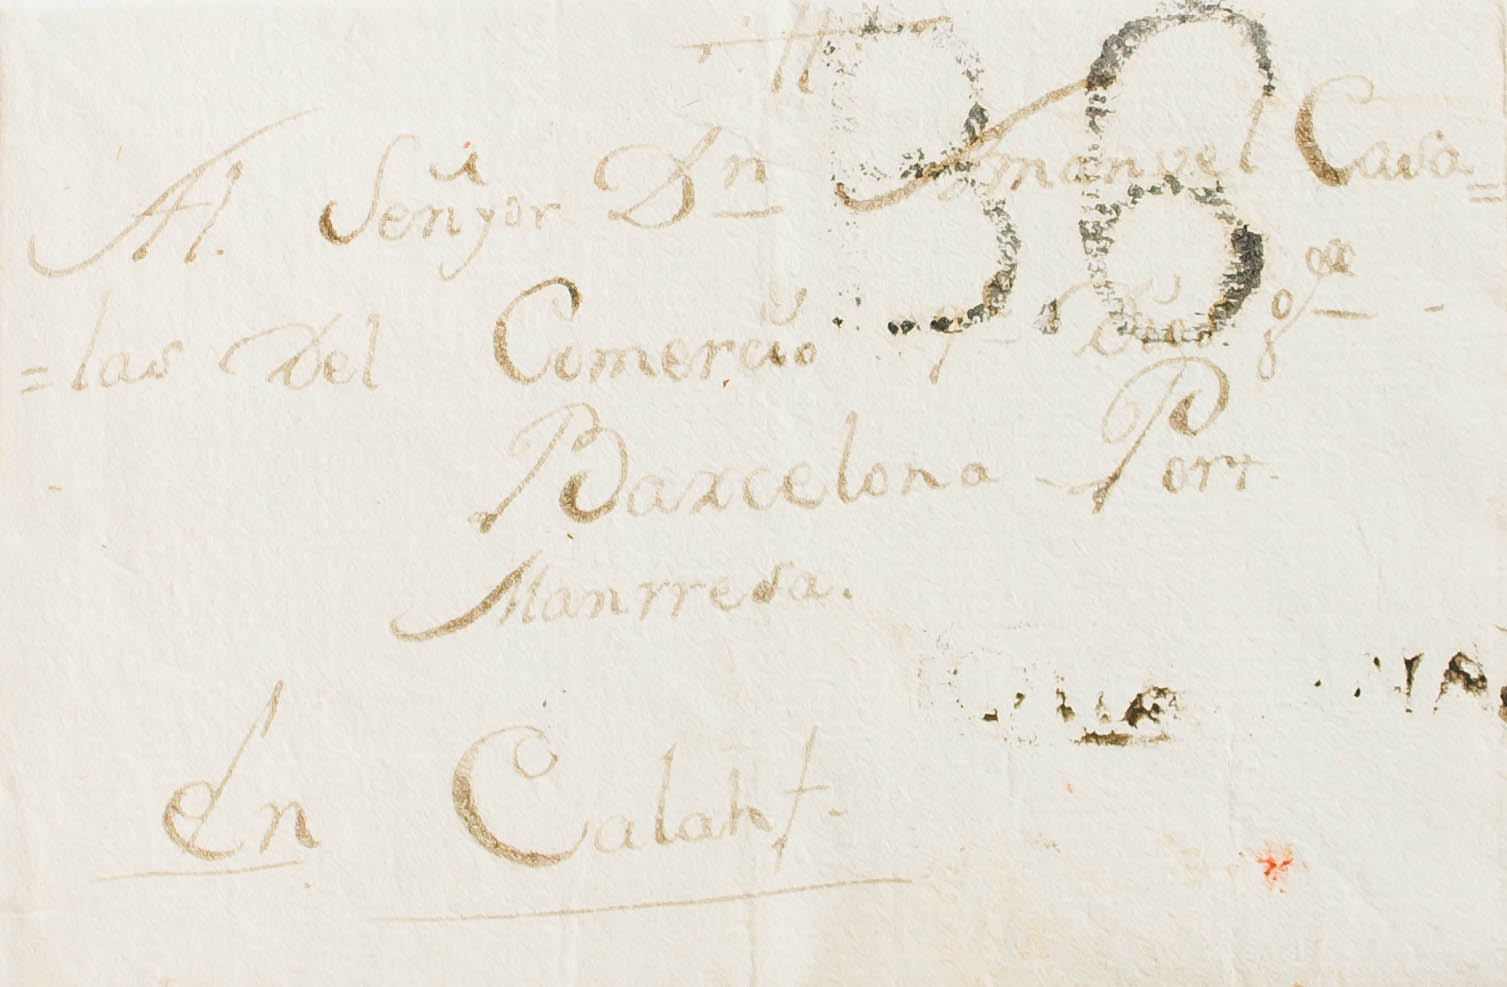 Al. Señyor Dn Manuel Casa=
=las del Comercio q. Dios gde
Barcelona Porr.
Manrresa.
En Calaht.